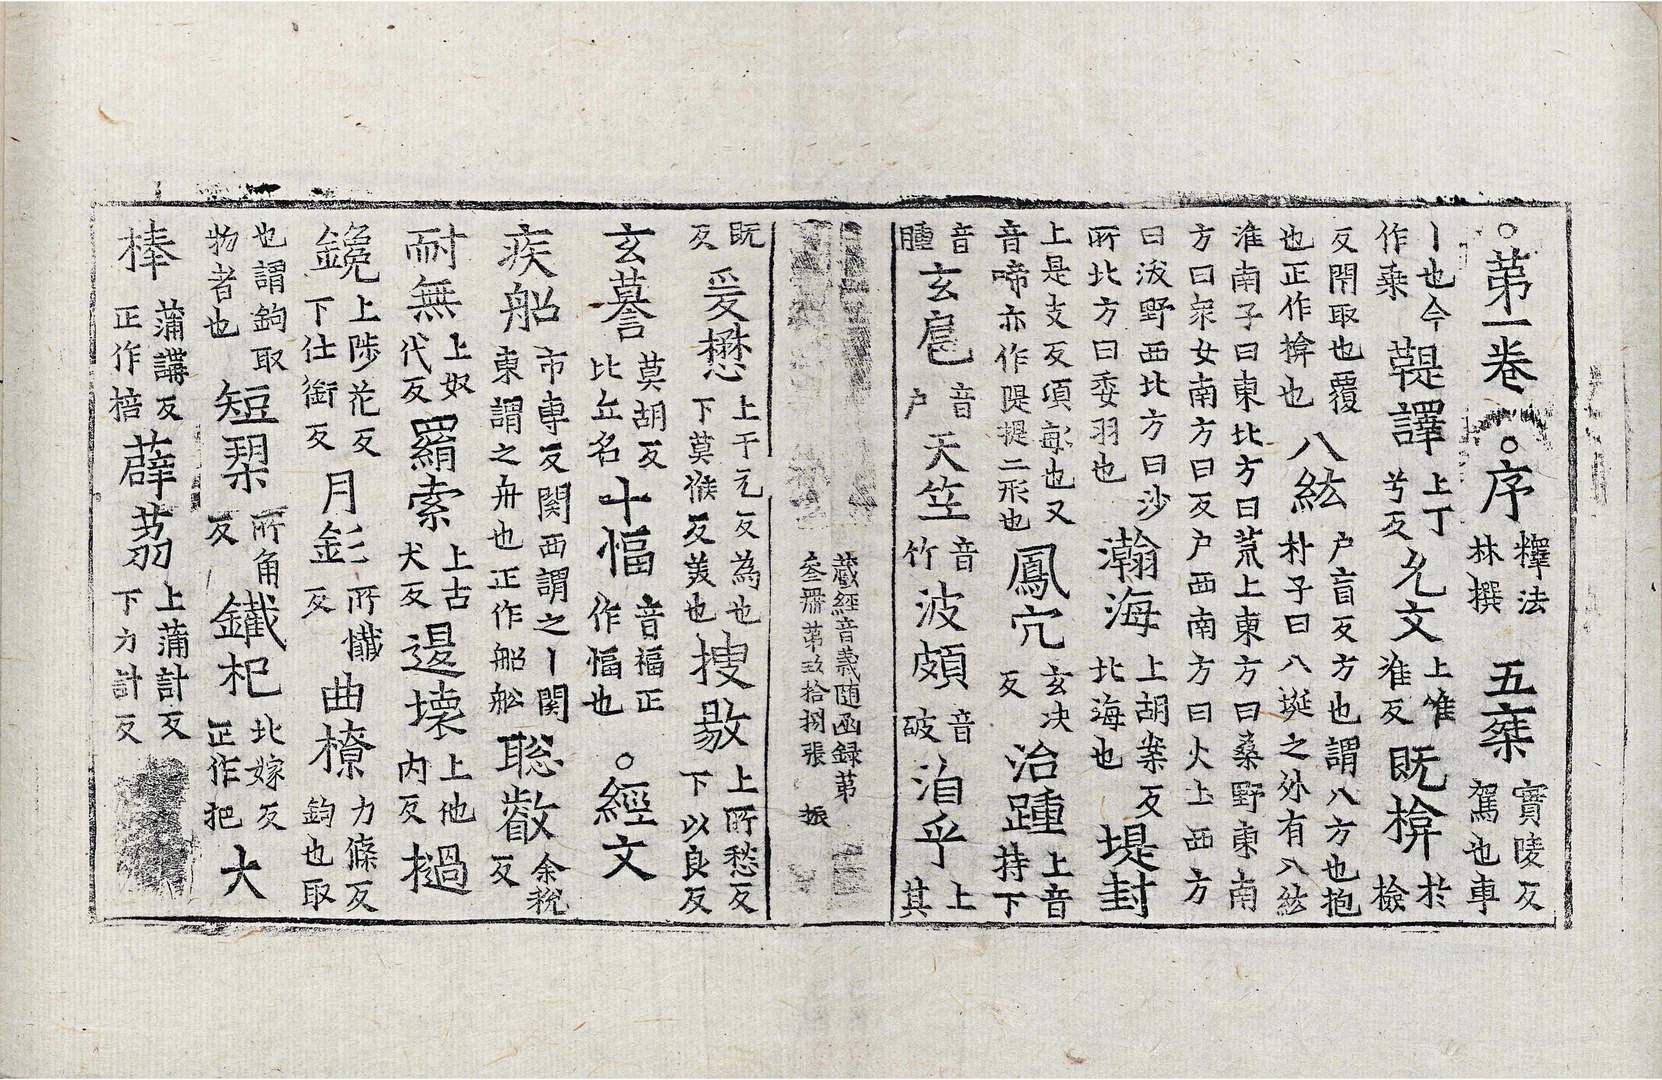 ○第一卷○序 檡法林撰 五椉 實陵反駕也車
丨也今作乗 鞮譯 上丁兮反 允文 上惟准反 既揜 於檢
反閇取也覆也正作揜也 八紘 户盲反方也謂八方也抱朴子曰八埏之外有八紘
淮南子曰東北方曰荒土東方曰桑野東南方曰衆女南方曰反户西南方曰火土西方
曰沃野西北方曰沙所北方曰委羽也 瀚海 上胡案反北海也 堤封
上是支反項𣫭也又音啼亦作隄提二形也 鳳穴 玄决反 治踵 上音持下
音腫 玄扈 音户 天竺 音竹 波頗 音破 洎乎 上其
既反 爰懋 上于元反為也下莫候反美也 搜敭 上所愁反下以良反
玄謩 莫胡反比丘名 十愊 音福正作幅也 ○經文
疾舩 市専反関西謂之丨関東謂之舟也正作船舩 聡叡 余税反
耐無 上奴代反 羂索 上古犬反 邊壞 上他内反 撾
鑱 上陟花反下仕銜反 月釤 所懴反 曲橑 力條反鈎也取
也謂鉤取物者也 短槊 所角反 鐵杷 北嫁反正作把 大
棒 蒲講反正作棓 薜茘 上蒲計反下力計反
藏經音義随函録第
叁册第玖拾捌張 振